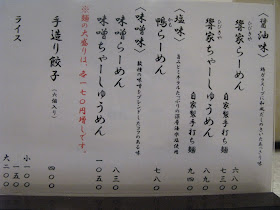 〈醤油味〉
ひびきや
饗家らーめん 自家製手打ち麺 六八〇
ひびきや
饗家ちゃーしゅうめん 自家製手打ち麺
〈塩味〉
鴨らーめん 七八〇
〈味噌味〉
味噌らーめん 八三〇
味噌ちゃーしゅうめん 一〇五〇
※麺の大盛りは、各一七〇円増しです。
手造り餃子（六個入り） 四〇〇
ライス 小一〇〇
一五〇
大二〇〇